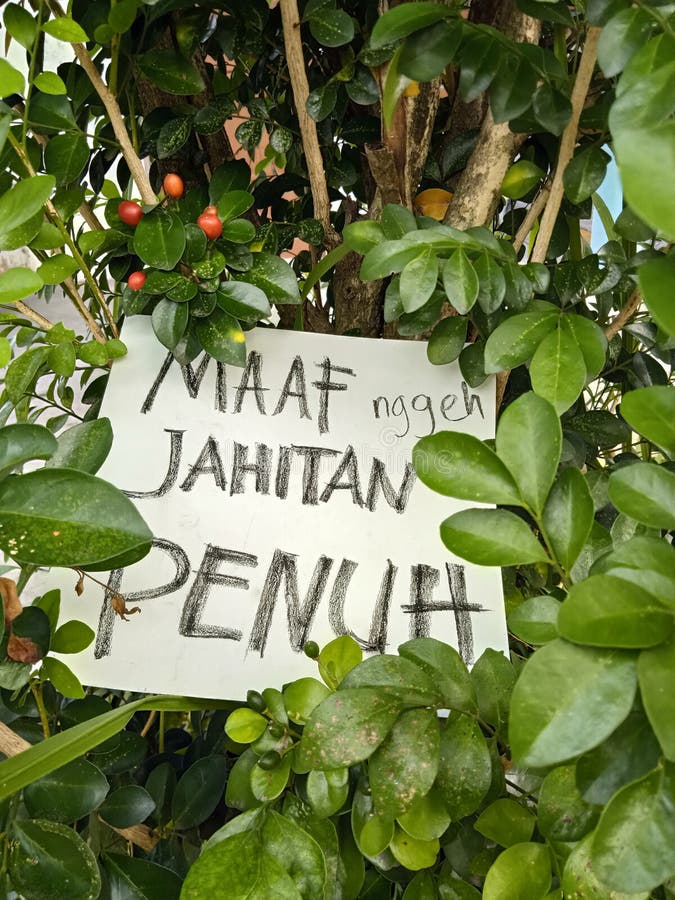 MAAF nggeh
JAHITAN
PENUH